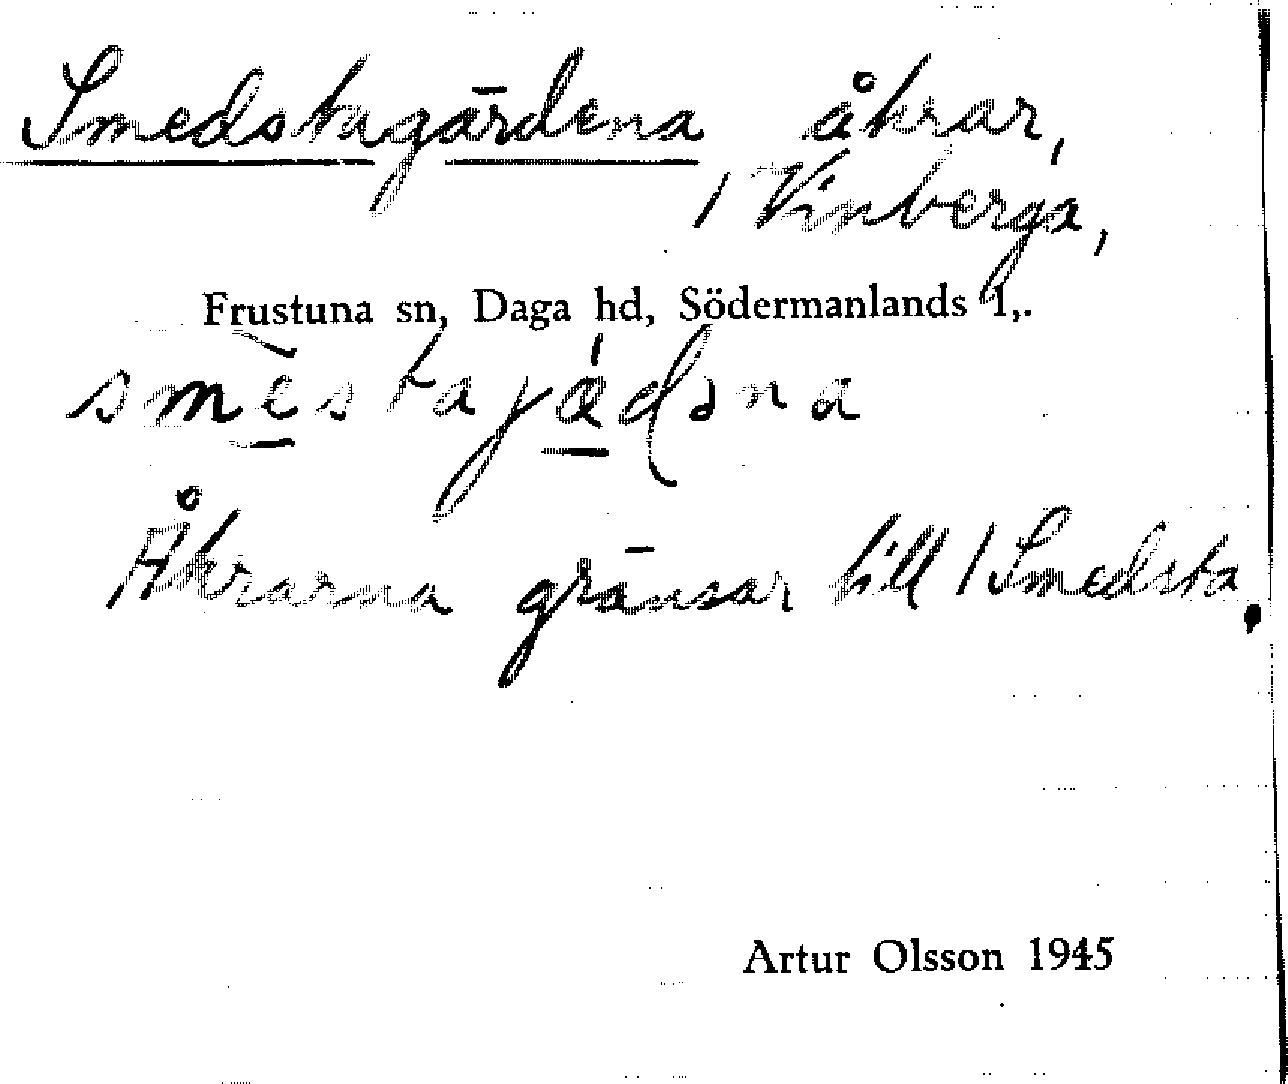 Smedstagärdena åkrar,
/ Vinberga,
Frustuna sn, Daga hd, Södermanlands l,.
smèstajǽdəna
Åkrarna gränsar till / Smedsta.
Artur Olsson 1945